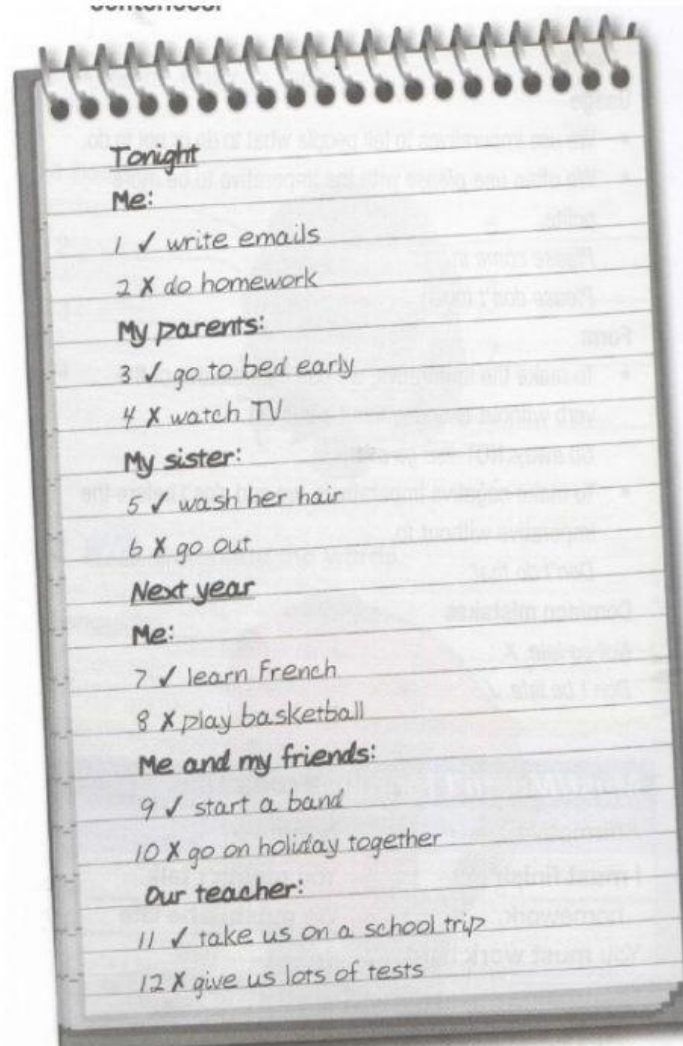 Tonight
Me:
1 ✓ write emails
2 X do homework
My parents:
3 ✓ go to bed early
4 X watch TV
My sister:
5 ✓ wash her hair
6 X go out
Next year
Me:
7 ✓ learn French
8 X play basketball
Me and my friends:
9 ✓ start a band
10 X go on holiday together
Our teacher:
11 ✓ take us on a school trip
12 X give us lots of tests